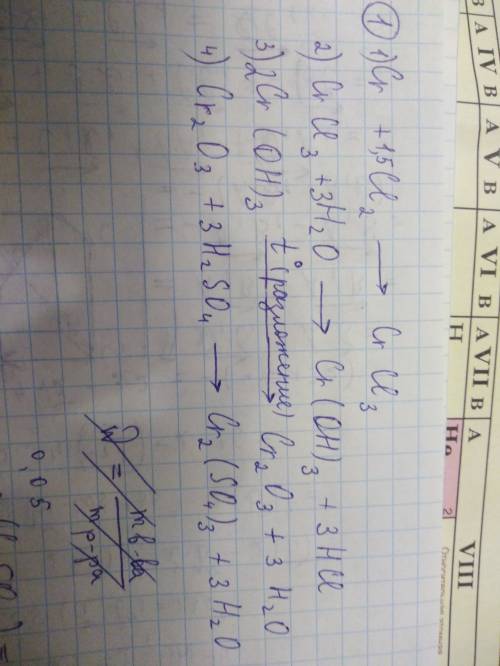 B A IV B A V B A VI B A VII B A VIII
H He 2
① 1) Cr + 1,5Cl₂ → CrCl₃
2) CrCl₃ + 3H₂O → Cr(OH)₃ + 3HCl
3) 2Cr(OH)₃ t° (разложение) → Cr₂O₃ + 3H₂O
4) Cr₂O₃ + 3H₂SO₄ → Cr₂(SO₄)₃ + 3H₂O
W = m в-ва
m р-ра
0,05